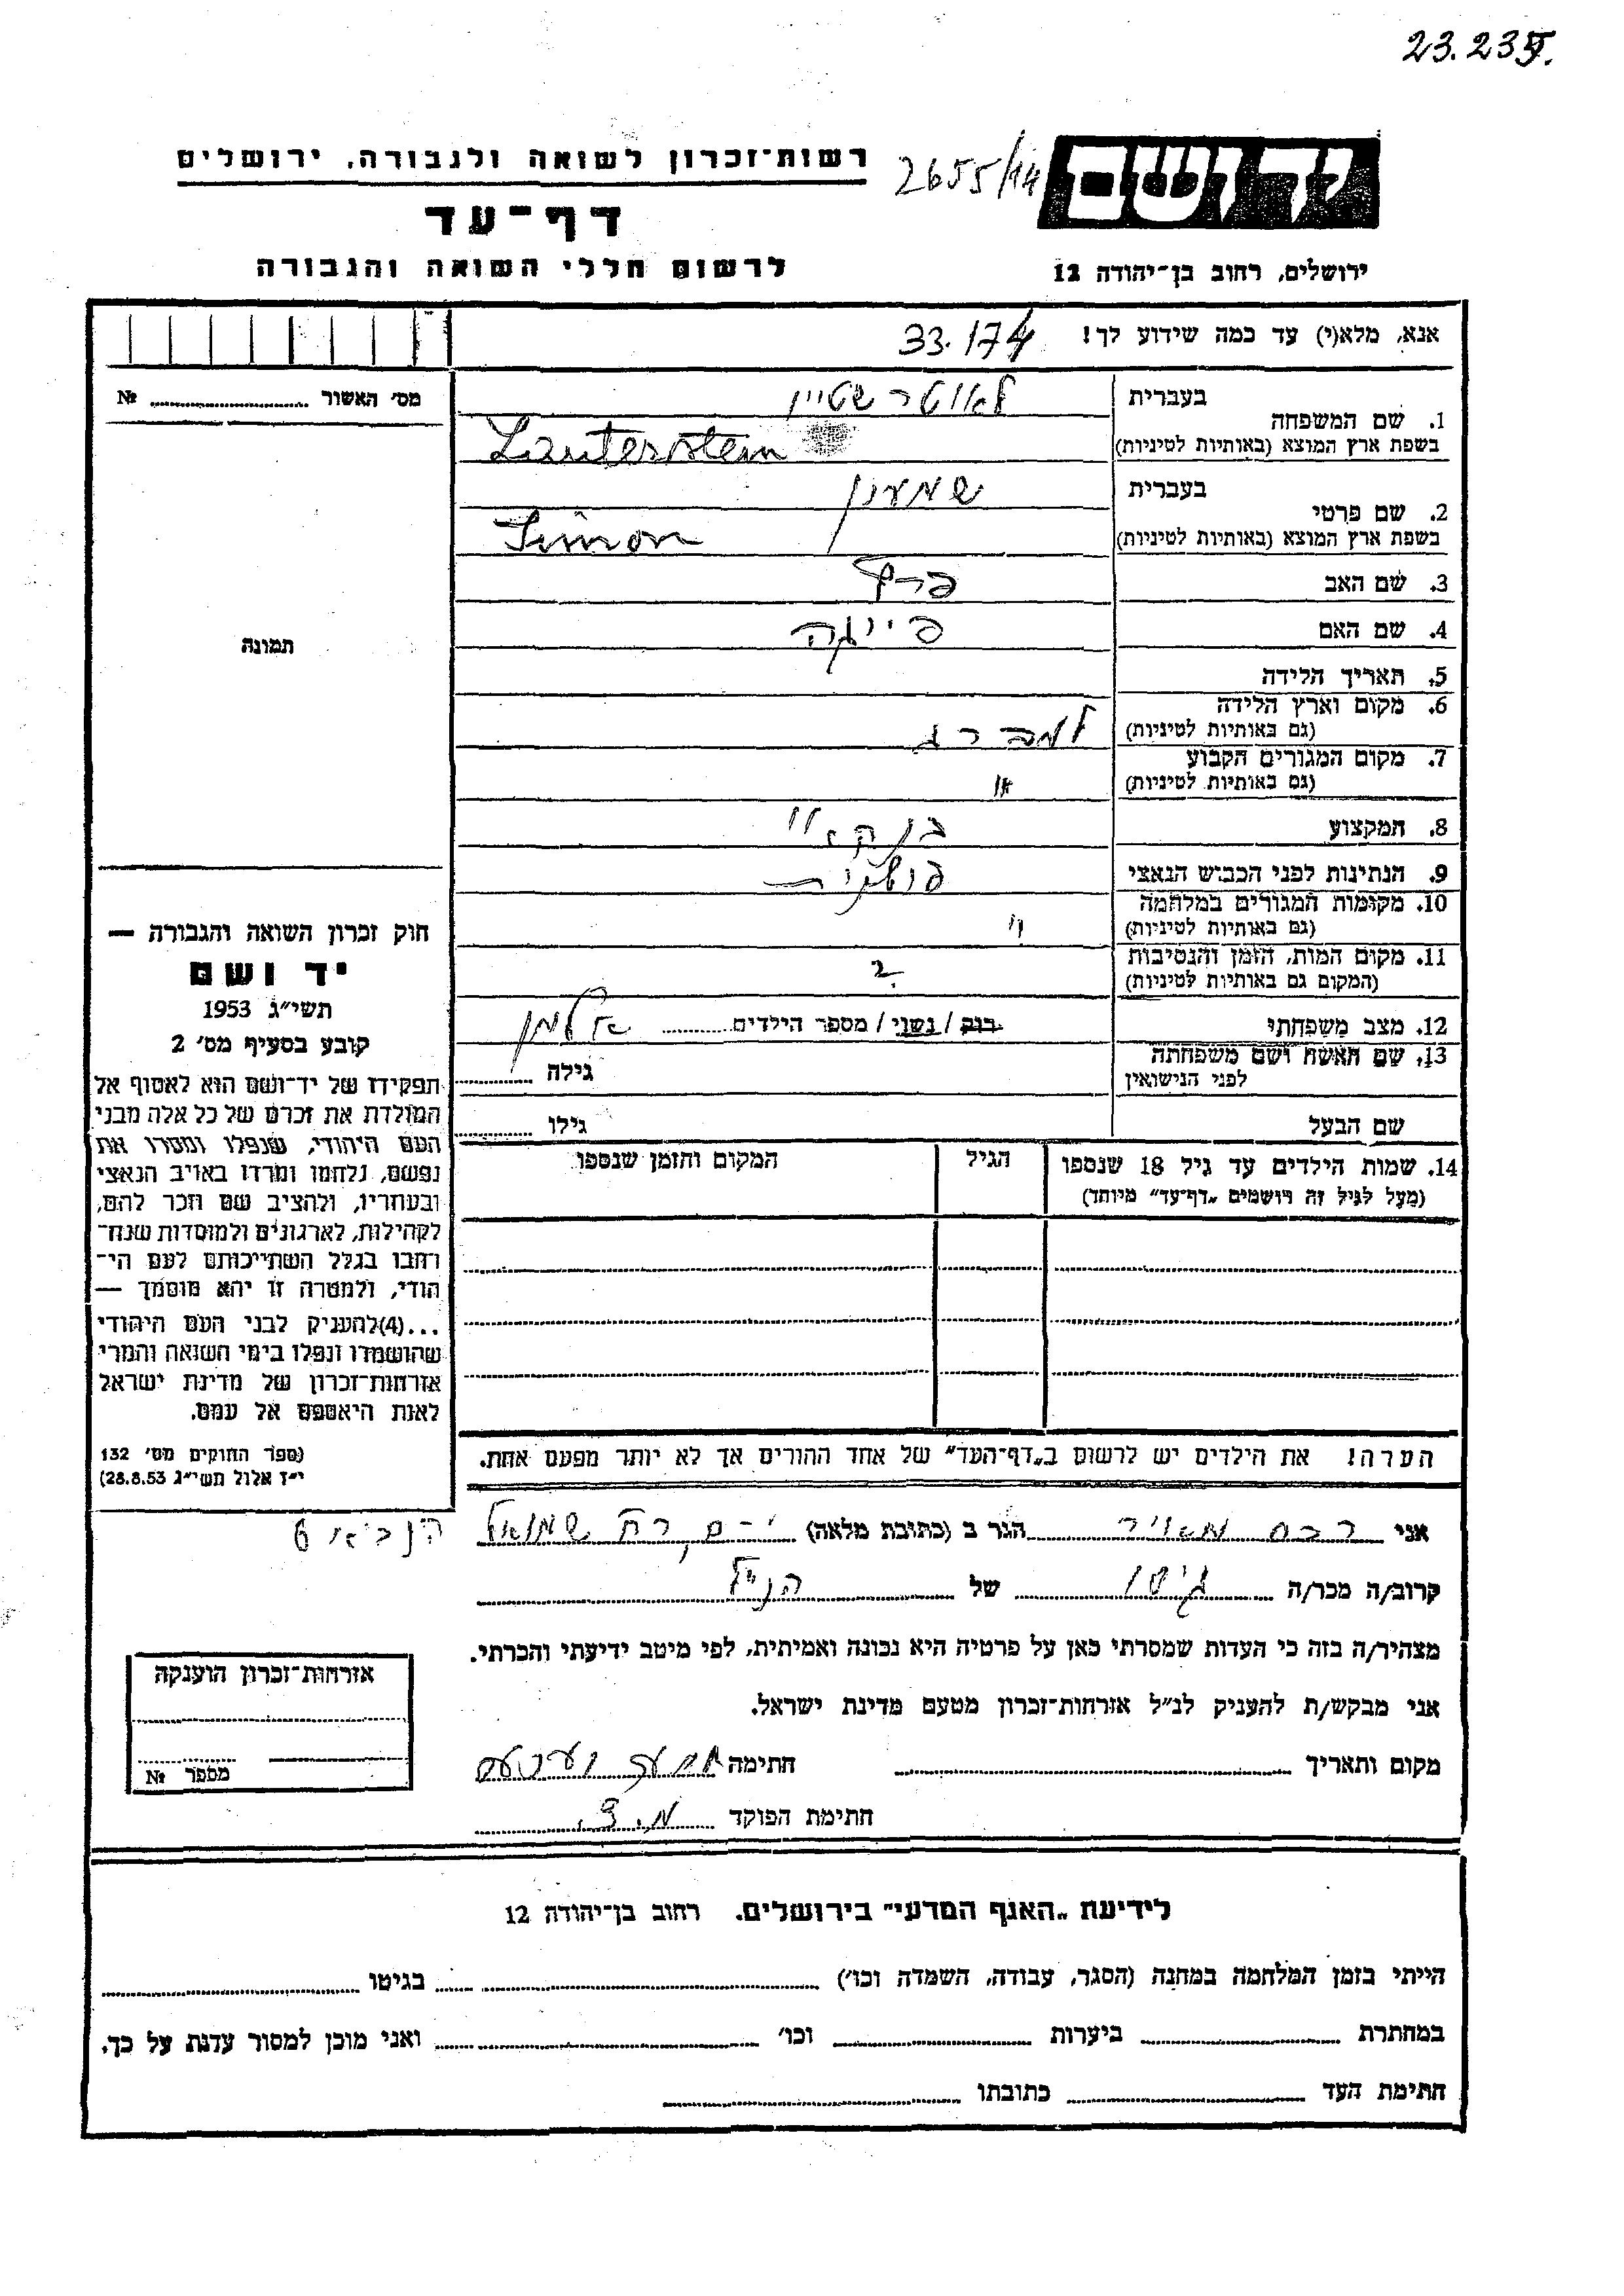 23.235.
רשות־זכרון לשואה ולגבורה, ירושלים
2655/14
יד ושם
דף־עד
לרשום חללי השואה והגבורה
ירושלים, רחוב בן־יהודה 12
אנא, מלא(י) עד כמה שידוע לך!
33.174
מס׳ האשור № ..........
1. שם המשפחה
בעברית לאוטרשטיין
בשפת ארץ המוצא (באותיות לטיניות) Lauterstein
2. שם פרטי
בעברית שמעון
בשפת ארץ המוצא (באותיות לטיניות) Simon
3. שם האב פרץ
4. שם האם פייגה
תמונה
5. תאריך הלידה
6. מקום וארץ הלידה
(גם באותיות לטיניות) למברג
7. מקום המגורים הקבוע
(גם באותיות לטיניות) "
8. המקצוע בנקאי
9. הנתינות לפני הכבוש הנאצי פולנית
10. מקומות המגורים במלחמה
(גם באותיות לטיניות) "
11. מקום המות, הזמן והנסיבות
(המקום גם באותיות לטיניות) ?
12. מצב משפחתי רווק / נשוי / מספר הילדים .......... אלמן
13. שם האשה ושם משפחתה
לפני הנישואין גילה ..........
שם הבעל גילו ..........
14. שמות הילדים עד גיל 18 שנספו
(מעל לגיל זה רושמים „דף־עד״ מיוחד)
הגיל
המקום והזמן שנספו
חוק זכרון השואה והגבורה —
יד ושם
תשי״ג 1953
קובע בסעיף מס׳ 2
תפקידו של יד־ושם הוא לאסוף אל
המולדת את זכרם של כל אלה מבני
העם היהודי, שנפלו ומסרו את
נפשם, נלחמו ומרדו באויב הנאצי
ובעוזריו, ולהציב שם וזכר להם,
לקהילות, לארגונים ולמוסדות שנח־
רבו בגלל השתייכותם לעם הי־
הודי, ולמטרה זו יהא מוסמך —
...(4)להעניק לבני העם היהודי
שהושמדו ונפלו בימי השואה והמרי
אזרחות־זכרון של מדינת ישראל
לאות היאספם אל עמם.
(ספר החוקים מס׳ 132
י״ז אלול תשי״ג 28.8.53)
הערה! את הילדים יש לרשום ב„דף־העד״ של אחד ההורים אך לא יותר מפעם אחת.
אני רבס מאיר הגר ב (כתובת מלאה) י-ם קרת שמואל הנביא 6
קרוב/ה מכר/ה גיסו של הנ״ל
מצהיר/ה בזה כי העדות שמסרתי כאן על פרטיה היא נכונה ואמיתית, לפי מיטב ידיעתי והכרתי.
אני מבקש/ת להעניק לנ״ל אזרחות־זכרון מטעם מדינת ישראל.
מקום ותאריך .......... חתימה
חתימת הפוקד
אזרחות־זכרון הוענקה
מספר №
לידיעת „האגף המדעי״ בירושלים. רחוב בן־יהודה 12
הייתי בזמן המלחמה במחנה (הסגר, עבודה, השמדה וכו׳) .......... בגיטו ..........
במחתרת .......... ביערות .......... וכו׳ .......... ואני מוכן למסור עדות על כך.
חתימת העד .......... כתובתו ..........